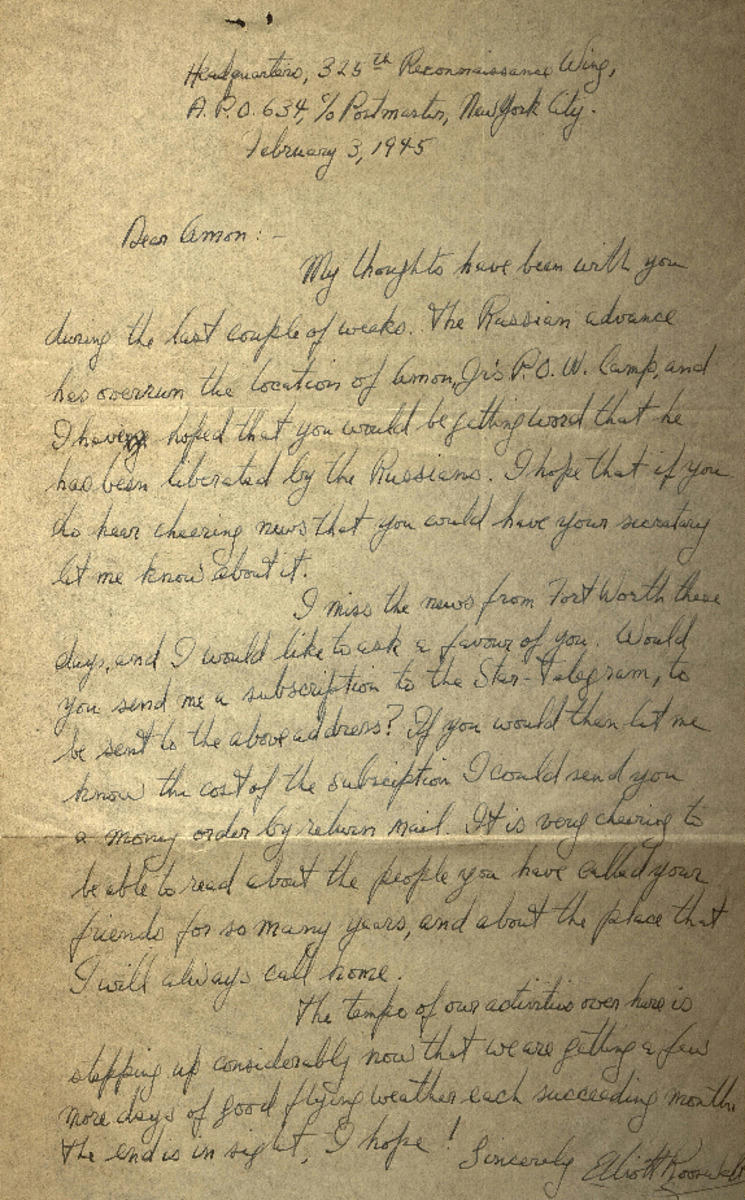 Headquarters, 325th Reconnaissance Wing,
A.P.O. 634, c/o Postmaster, New York City.
February 3, 1945
Dear Amon: -
My thoughts have been with you
during the last couple of weeks. The Russian advance
has overrun the location of Amon, Jr's P.O.W. Camp, and
I have hoped that you would be getting word that he
has been liberated by the Russians. I hope that if you
do hear cheering news that you could have your secretary
let me know about it.
I miss the news from Fort Worth these
days, and I would like to ask a favour of you. Would
you send me a subscription to the Star-Telegram, to
be sent to the above address? If you would then let me
know the cost of the subsciption I could send you
a money order by return mail. It is very cheering to
be able to read about the people you have called your
friends for so many years, and about the place that
I will always call home.
The tempo of our activities over here is
stepping up considerably now that we are getting a few
more days of good flying weather each succeeding month.
The end is in sight, I hope!
Sincerely Elliott Roosevelt